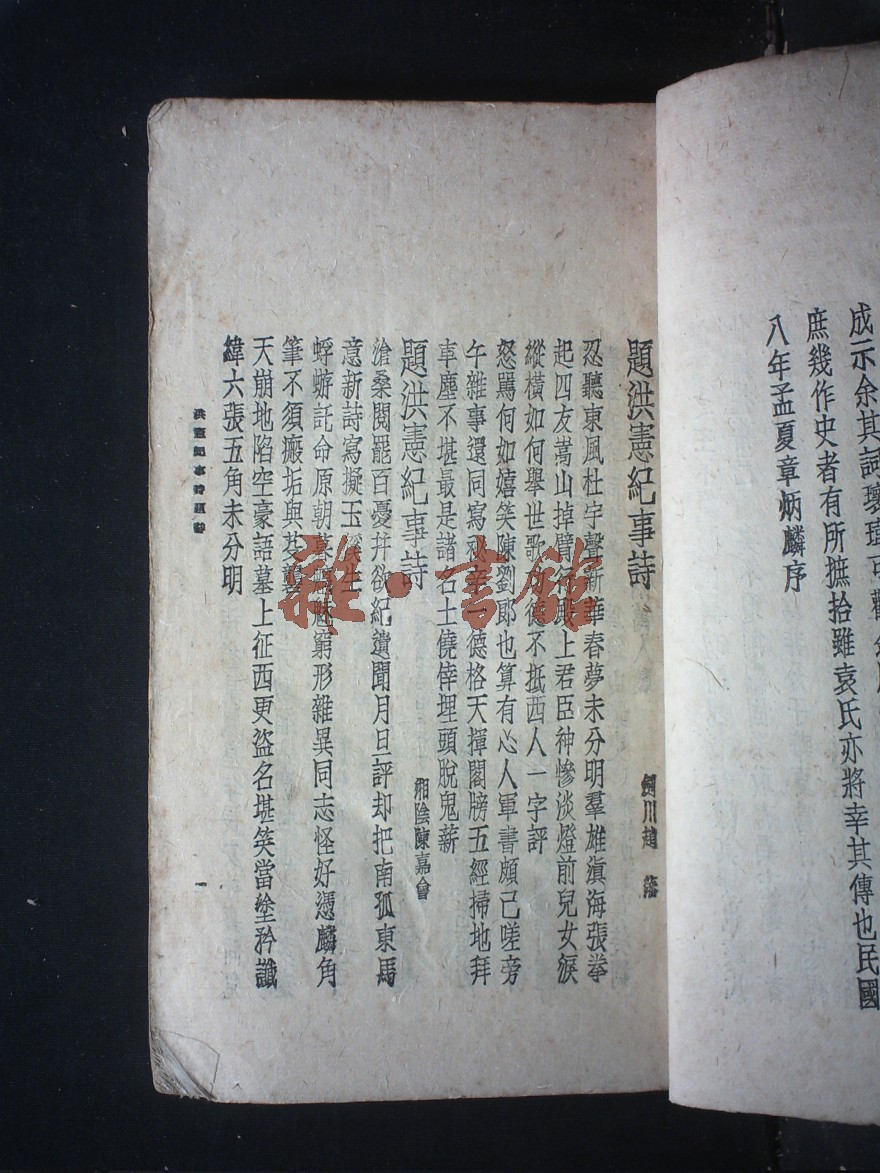 成示余其詞瓌瑋可觀
庶幾作史者有所摭拾雖袁氏亦將幸其傳也民國
八年孟夏章炳麟序
題洪憲紀事詩
劍川趙藩
忍聽東風杜宇聲新華春夢未分明羣雄滇海張拳
起四友嵩山掉臂行殿上君臣神慘淡燈前兒女淚
縱橫如何舉世歌功德不抵西人一字評
怒罵何如嬉笑陳劉郎也算有心人軍書頗已嗟旁
午雜事還同寫祕辛一德格天揮閣牓五經掃地拜
車塵不堪最是諸名士僥倖埋頭脫鬼薪
題洪憲紀事詩
湘陰陳嘉會
滄桑閱罷百憂幷欲紀遺聞月旦評却把南狐東馬
意新詩寫擬玉溪生
蜉蝣託命原朝魅窮形雜異同志怪好憑麟角
筆不須瘢垢與
天崩地陷空豪語墓上征西更盜名堪笑當塗矜讖
緯六張五角未分明
洪憲紀事詩題辭
一
雜·書館